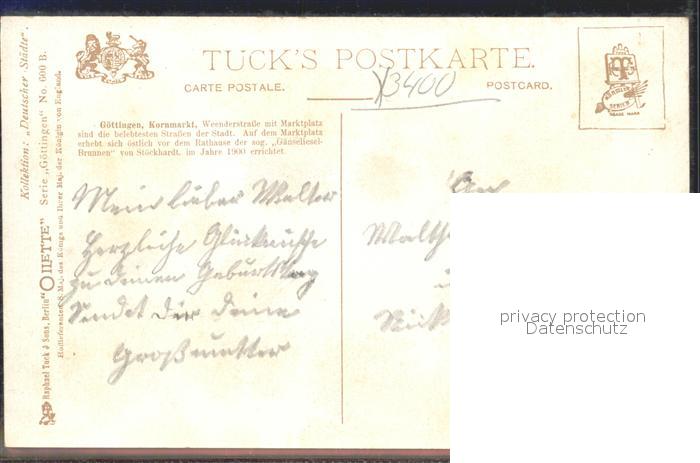 Kollektion: „Deutscher Städte“.
Serie „Göttingen“ No. 600 B.
Hoflieferanten S. Maj. des Königs und Ihrer Maj. der Königin von England.
Raphael Tuck & Sons, Berlin "OILETTE"
TUCK'S POSTKARTE.
CARTE POSTALE.
POSTCARD.
3400
TRADE MARK
Göttingen, Kornmarkt, Weenderstraße mit Marktplatz
sind die belebtesten Straßen der Stadt. Auf dem Marktplatz
erhebt sich östlich vor dem Rathause der sog. „Gänseliesel-
Brunnen“ von Stöckhardt, im Jahre 1900 errichtet.
Mein lieber Walter
Herzliche Glückwünsche
zu deinem Geburtstag
Sendet dir deine
Großmutter
An
Walth
privacy protection
Datenschutz